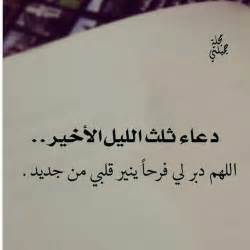 مجلة
جميلتي
دعاء ثلث الليل الأخير . .
اللهم دبر لي فرحاً ينير قلبي من جديد .